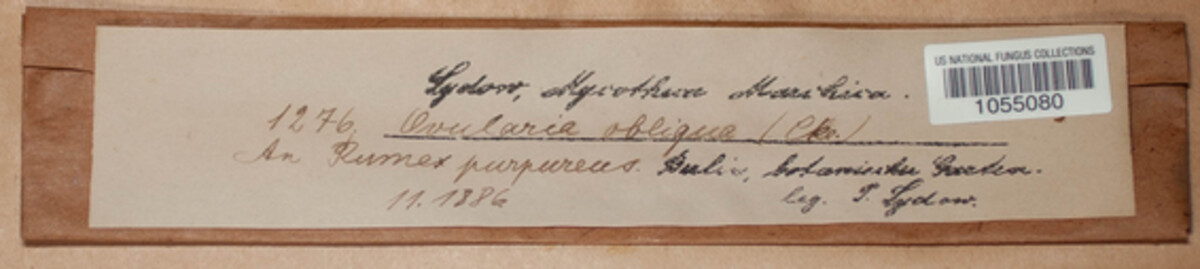 Sydow, Mycotheca Marchica.
US NATIONAL FUNGUS COLLECTIONS
1055080
1276. Ovularia obliqua (Cke.)
An Rumex purpureus. Berlin, botanischer Garten.
11. 1886 leg. P. Sydow.